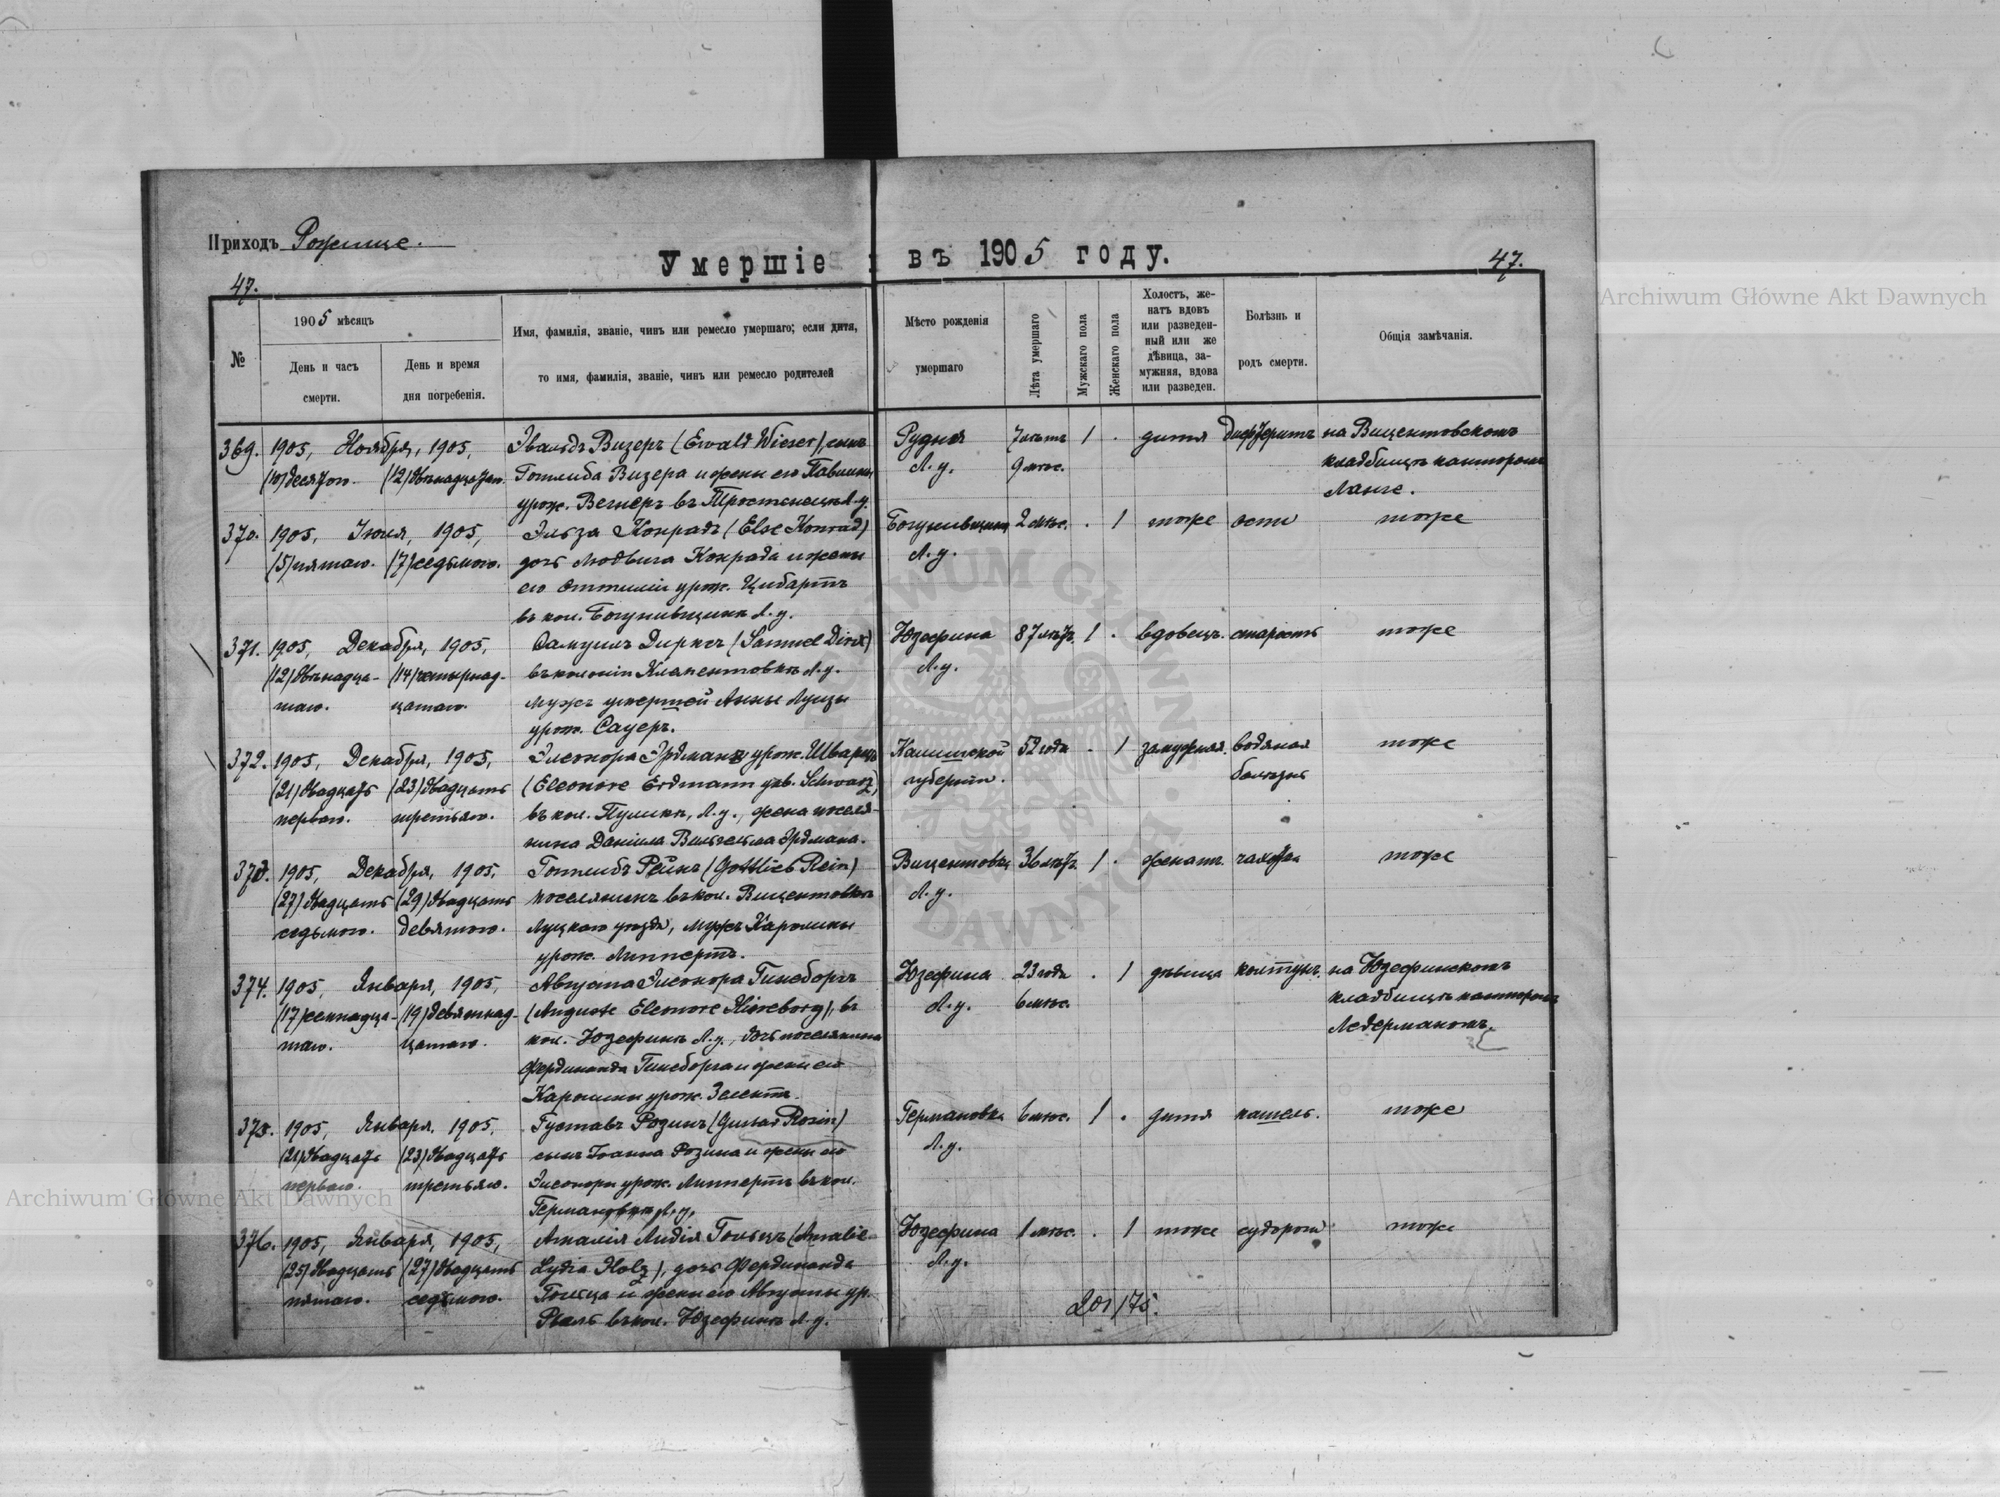 Приходъ Рожище.
Умершіе въ 1905 году.
47.
47.
№
1905 мѣсяцъ
День и часъ смерти.
День и время дня погребенія.
Имя, фамилія, званіе, чинъ или ремесло умершаго; если дитя,
то имя, фамилія, званіе, чинъ или ремесло родителей
Мѣсто рожденія
умершаго
Лѣта умершаго
Мужскаго пола
Женскаго пола
Холостъ, же-
натъ вдовъ
или разведен-
ный или же
дѣвица, за-
мужняя, вдова
или разведен.
Болѣзнь и
родъ смерти.
Общія замѣчанія.
369. 1905, Ноября, 1905, Эвальдъ Визеръ (Ewald Wieser), сынъ Рудня 7 лѣтъ 1 . дитя дифтеритъ на Вицентовскомъ
(10) десятого. (12) двѣнадцатаго. Готлиба Визера и жены его Павлины Л. у. 9 мѣс. кладбищѣ канторомъ
урож. Вегнеръ въ Тростенецъ Л. у. Ланге.
370. 1905, Іюля, 1905, Эльза Конрадъ (Else Konrad) Богушевщина 2 мѣс. . 1 тоже оспы тоже
(5) пятаго. (7) седьмого. дочь Людвига Конрада и жены Л. у.
его Оттиліи урож. Цибартъ
въ кол. Богушевщинѣ Л. у.
371. 1905, Декабря, 1905, Самуилъ Дирксъ (Samuel Dirx) Юзефина 87 лѣтъ 1 . вдовецъ. старость тоже
(12) двѣнадца- (14) четырнад- въ колоніи Клементовкѣ Л. у. Л. у.
таго. цатаго. мужъ умершей Анны Луизы
урож. Сауеръ.
372. 1905, Декабря, 1905, Элеонора Эрдманъ урож. Шварцъ Калишской 52 года . 1 замужняя. водяная тоже
(21) двадцать (23) двадцать (Eleonore Erdmann geb. Schwarz) губерніи. болѣзнь
перваго. третьяго. въ кол. Л. у., жена поселя-
нина Даніила Вильгельма Эрдмана.
373. 1905, Декабря, 1905, Готлибъ Рейнъ (Gottlieb Rein) Вицентовка 36 лѣтъ 1 . женатъ чахотка тоже
(27) двадцать (29) двадцать поселянинъ въ кол. Вицентовкѣ Л. у.
седьмого. девятого. Луцкаго уѣзда, мужъ Каролины
урож. Липпертъ.
374. 1905, Января, 1905, Августа Элеонора Гинсборгъ Юзефина 23 года . 1 дѣвица колтунъ. на Юзефинскомъ
(17) семнадца- (19) девятнад- (Auguste Eleonore Hinsborg), въ Л. у. 6 мѣс. кладбищѣ канторомъ
таго. цатаго. кол. Юзефинъ Л. у., дочь поселянина Ледерманомъ.
Фердинанда Гинсборга и жены его
Каролины урож. Зелентъ.
375. 1905, Января, 1905, Густавъ Розинъ (Gustav Rosin) Германовка 6 мѣс. 1 . дитя кашель. тоже
(21) двадцать (23) двадцать сынъ Іоанна Розина и жены его Л. у.
перваго. третьяго. Элеоноры урож. Липпертъ въ кол.
Германовкѣ Л. у.
376. 1905, Января, 1905, Амалія Лидія Гольцъ (Amalie Юзефина 1 мѣс. . 1 тоже судороги тоже
(25) двадцать (27) двадцать Lydia Holz), дочь Фердинанда Л. у.
пятаго. седьмого. Гольца и жены его Августы ур.
въ кол. Юзефинъ Л. у.
201/175.
Archiwum Główne Akt Dawnych
Archiwum Główne Akt Dawnych